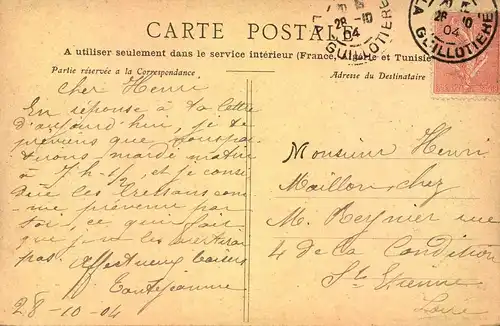 CARTE POSTALE
A utiliser seulement dans le service intérieur (France, Algérie et Tunisie
Partie réservée a la Correspondance
Adresse du Destinataire
LA GUILLOTIERE
28 -10
04
LA GUILLOTIERE
28 -10
04
Cher Henri
En réponse à ta lettre
d'aujourd'hui, je te
préviens que nous par
tirons mardi matin
à 7 h. 1/2 et je consi
dère les
me prévenir par
toi, ce qui fait
que je ne les avertirai
pas. Affectueux baisers
28-10-04
Monsieur Henri
Maillon, chez
M. Reynier rue
4 de la Condition
St Etienne
Loire